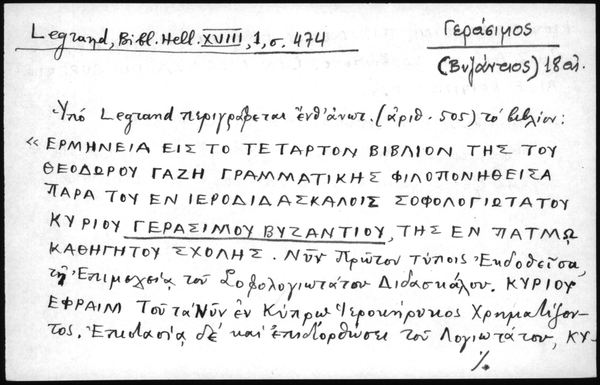 Legrand, Bibl. Hell. XVIII, 1, σ. 474
Γεράσιμος
(Βυζάντιος) 18 αἰ.
Ὑπὸ Legrand περιγράφεται ἔνθ' ἀνωτ. (ἀριθ. 505) τὸ βιβλίον:
« ΕΡΜΗΝΕΙΑ ΕΙΣ ΤΟ ΤΕΤΑΡΤΟΝ ΒΙΒΛΙΟΝ ΤΗΣ ΤΟΥ
ΘΕΟΔΩΡΟΥ ΓΑΖΗ ΓΡΑΜΜΑΤΙΚΗΣ ΦΙΛΟΠΟΝΗΘΕΙΣΑ
ΠΑΡΑ ΤΟΥ ΕΝ ΙΕΡΟΔΙΔΑΣΚΑΛΟΙΣ ΣΟΦΟΛΟΓΙΩΤΑΤΟΥ
ΚΥΡΙΟΥ ΓΕΡΑΣΙΜΟΥ ΒΥΖΑΝΤΙΟΥ, ΤΗΣ ΕΝ ΠΑΤΜῼ
ΚΑΘΗΓΗΤΟΥ ΣΧΟΛΗΣ. Νῦν Πρῶτον τύποις Ἐκδοθεῖσα,
τῇ Ἐπιμελείᾳ τοῦ Σοφολογιωτάτου Διδασκάλου. ΚΥΡΙΟΥ
ΕΦΡΑΙΜ Τοῦ τὰ Νῦν ἐν Κύπρῳ Ἱεροκήρυκος Χρηματίζον-
τος. Ἐπιστασίᾳ δὲ καὶ ἐπιδιορθώσει τοῦ Λογιωτάτου, ΚΥ-
./.